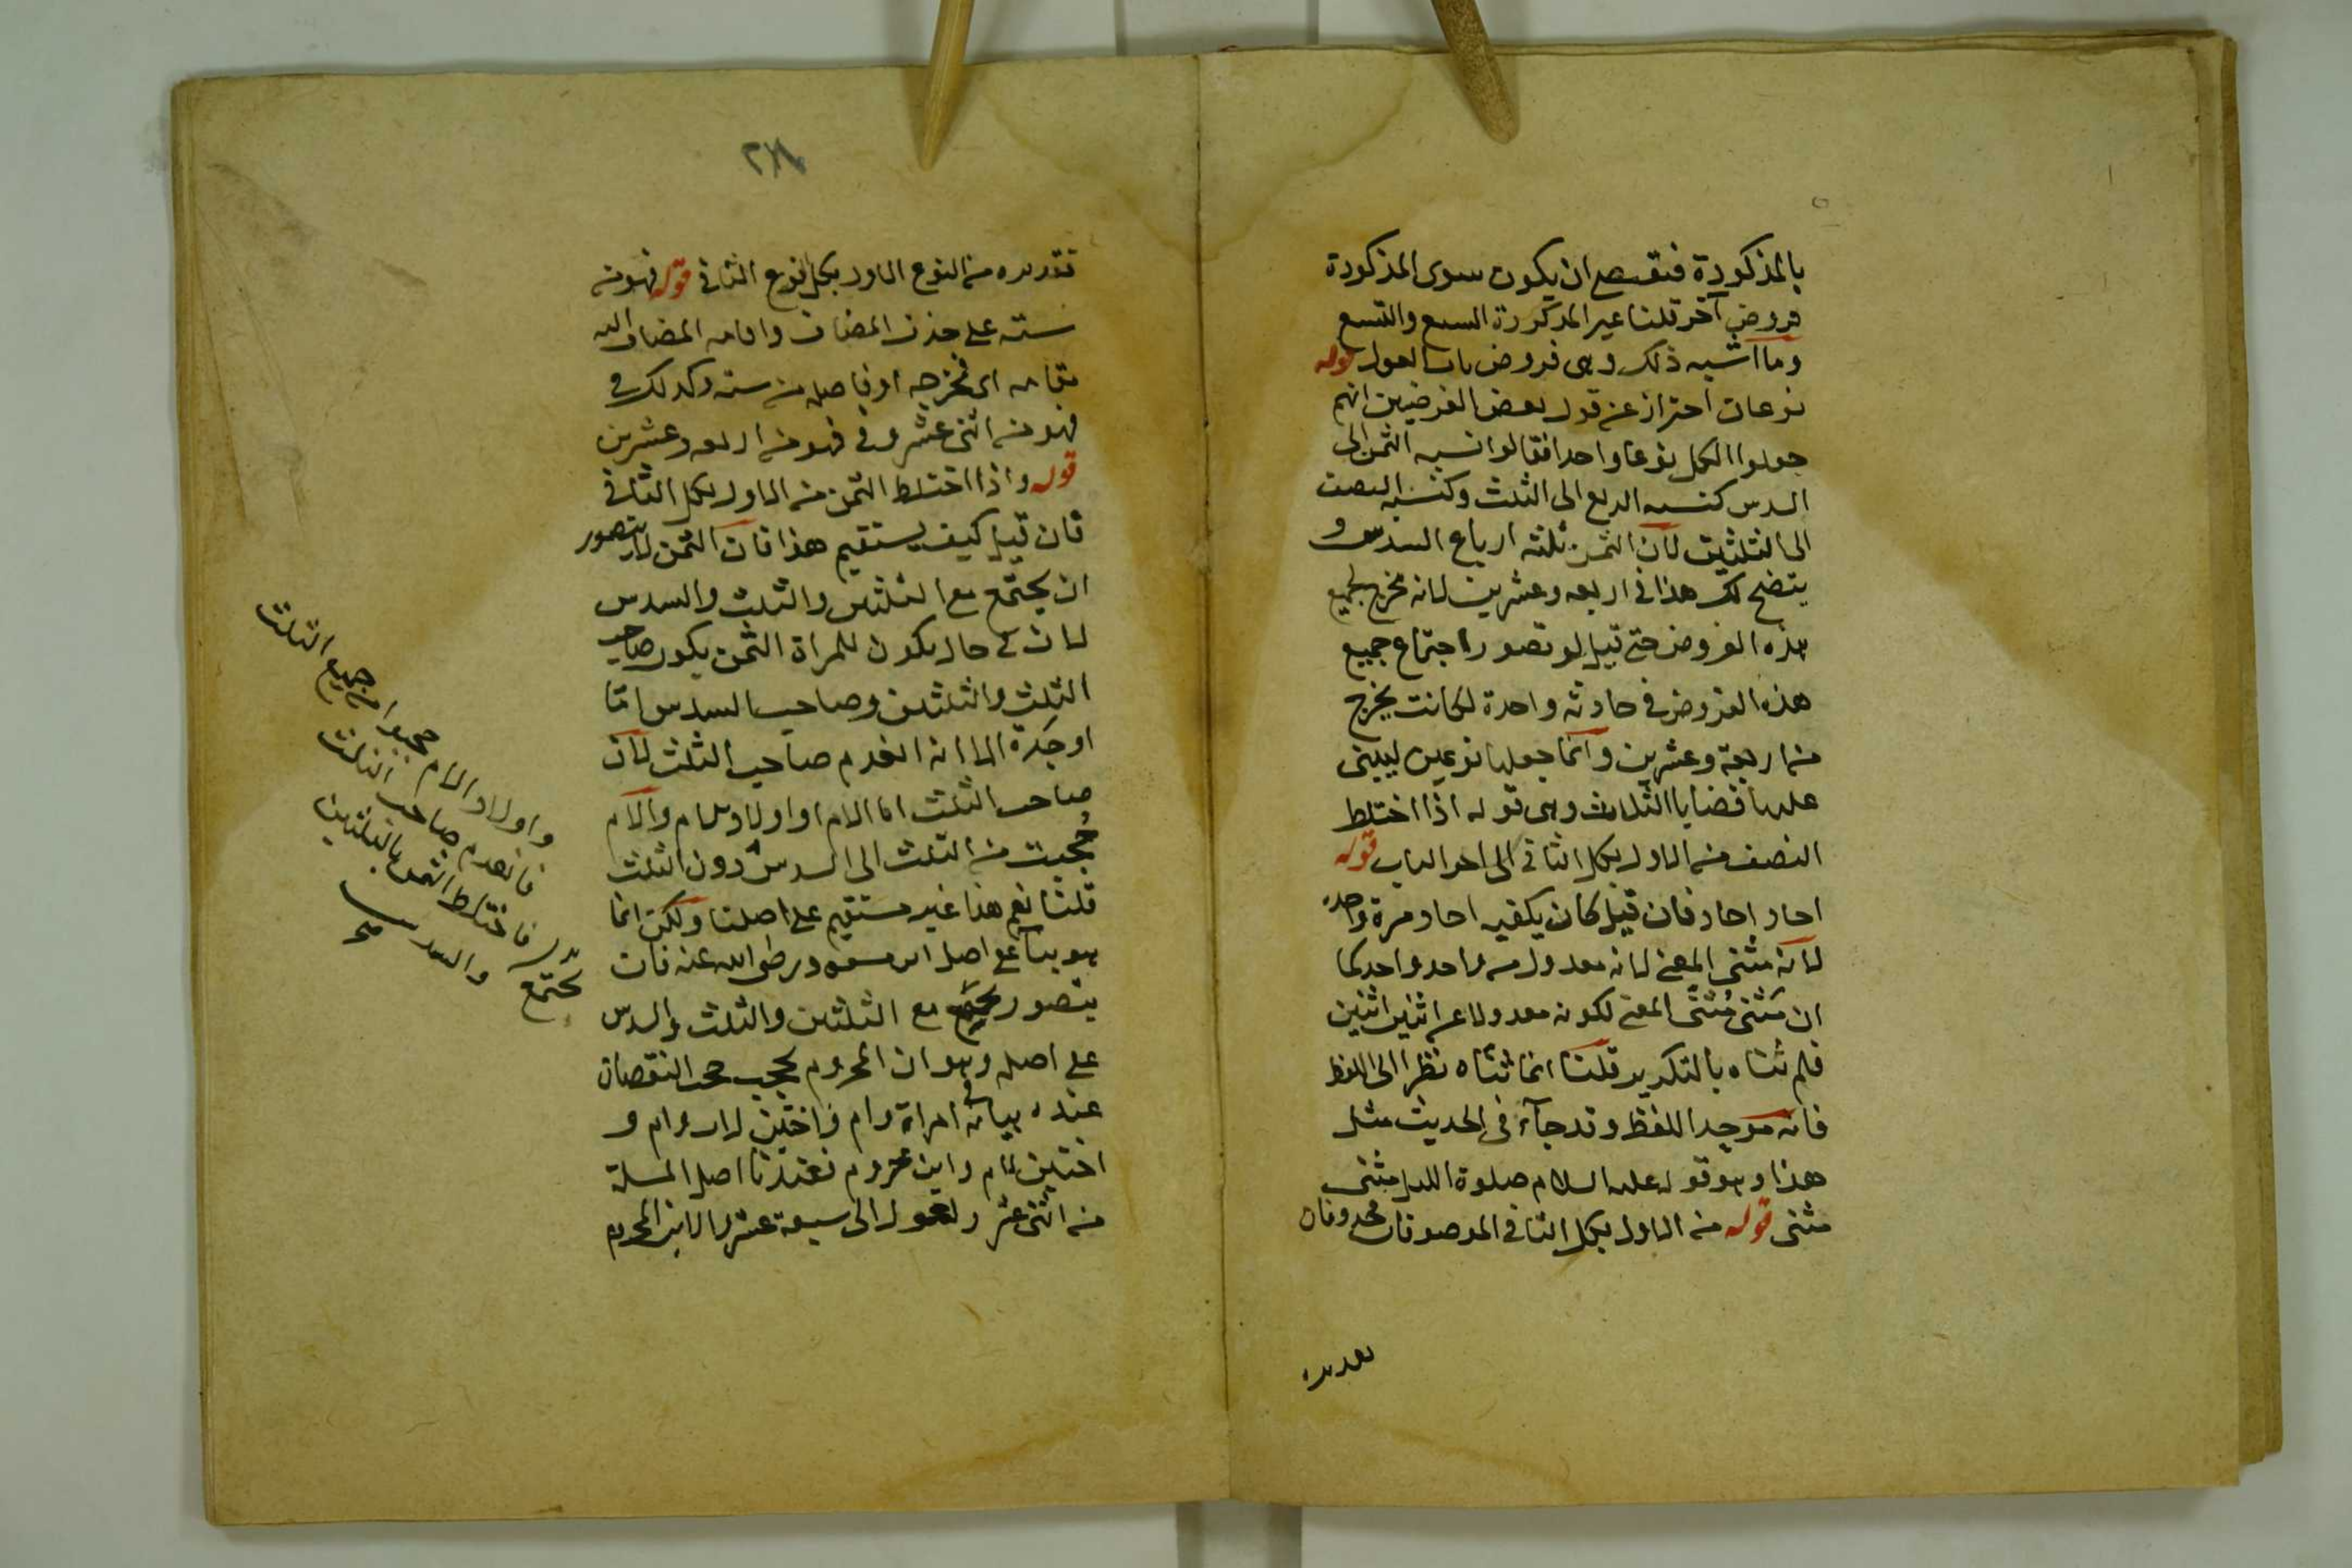 بالمذكورة فيقتضى ان يكون سوى المذكورة
فروض آخر قلنا غير المذكورة السبع والتسع
وما اشبه ذلك وهى فروض باب العول قوله
نوعان احتراز عن قول بعض الفرضيين انهم
جعلوا الكل نوعا واحدا فقالوا نسبه الثمن الى
السدس كنسبه الربع الى الثلث وكنسبه النصف
الى الثلثين لان الثمن ثلثه ارباع السدس و
يتضح لك هذا فى اربعه وعشرين لانه مخرج لجميع
هذه الفروض حتى قيل لو تصور اجتماع جميع
هذه الفروض فى حادثه واحدة لكانت يخرج
من اربعة وعشرين وانما جعلها نوعين ليبنى
عليها قضايا الثلاث وهى قوله اذا اختلط
النصف من الاول بكل الثانى الى اخر الباب قوله
احاد احاد فان قيل كان يكفيه احاد مرة واحدة
لانه مثنى المعنى لانه معدول من واحد واحد كما
ان مثنى مثنى المعنى لكونه معدولا عن اثنين اثنين
فلم ثناه بالتكرير قلنا انما ثناه نظرا الى اللفظ
فانه موحد اللفظ وقد جآء فى الحديث مثل
هذا وهو قوله عليه السلام صلوة الليل مثنى
مثنى قوله من الاول بكل الثانى الموصوفان محذوفان
تقديره
٢٨١
تقديره من النوع الاول بكل نوع الثانى قوله فهو من
سته على حذف المضاف واقامه المضاف اليه
مقامه اى مخرجه او فاصله من سته وكذلك فى
فهو من اثنى عشر وفى فهو من اربعه وعشرين
قوله واذا اختلط الثمن من الاول بكل الثانى
فان قيل كيف يستقيم هذا فان الثمن لا يتصور
ان يجتمع مع الثلثين والثلث والسدس
لان فى حال يكون للمراة الثمن يكون صاحب
الثلث والثلثين وصاحب السدس اما
او جدة الا انه انعدم صاحب الثلث لان
صاحب الثلث اما الام او اولاد الام والام
حُجبت من الثلث الى السدس دون الثلث
قلنا نعم هذا غير مستقيم على اصلنا ولكن انما
هو بيا على اصل ابن مسعود رضى الله عنه فان
يتصور يجتمع مع الثلثين والثلث والسدس
على اصله وهو ان المحروم يحجب حجب النقصان
عنده بيانه فى امراة وام واختين لاب وام و
اختين لام وابن محروم فعندنا اصل المسلة
من اثنى عشر وتعول الى سبعة عشر لان الابن المحروم
واولاد الام حجبوا من جميع الثلث
فانعدم صاحب الثلث
فاختلط الثمن بالثلثين
والسدس
يجتمع
صح